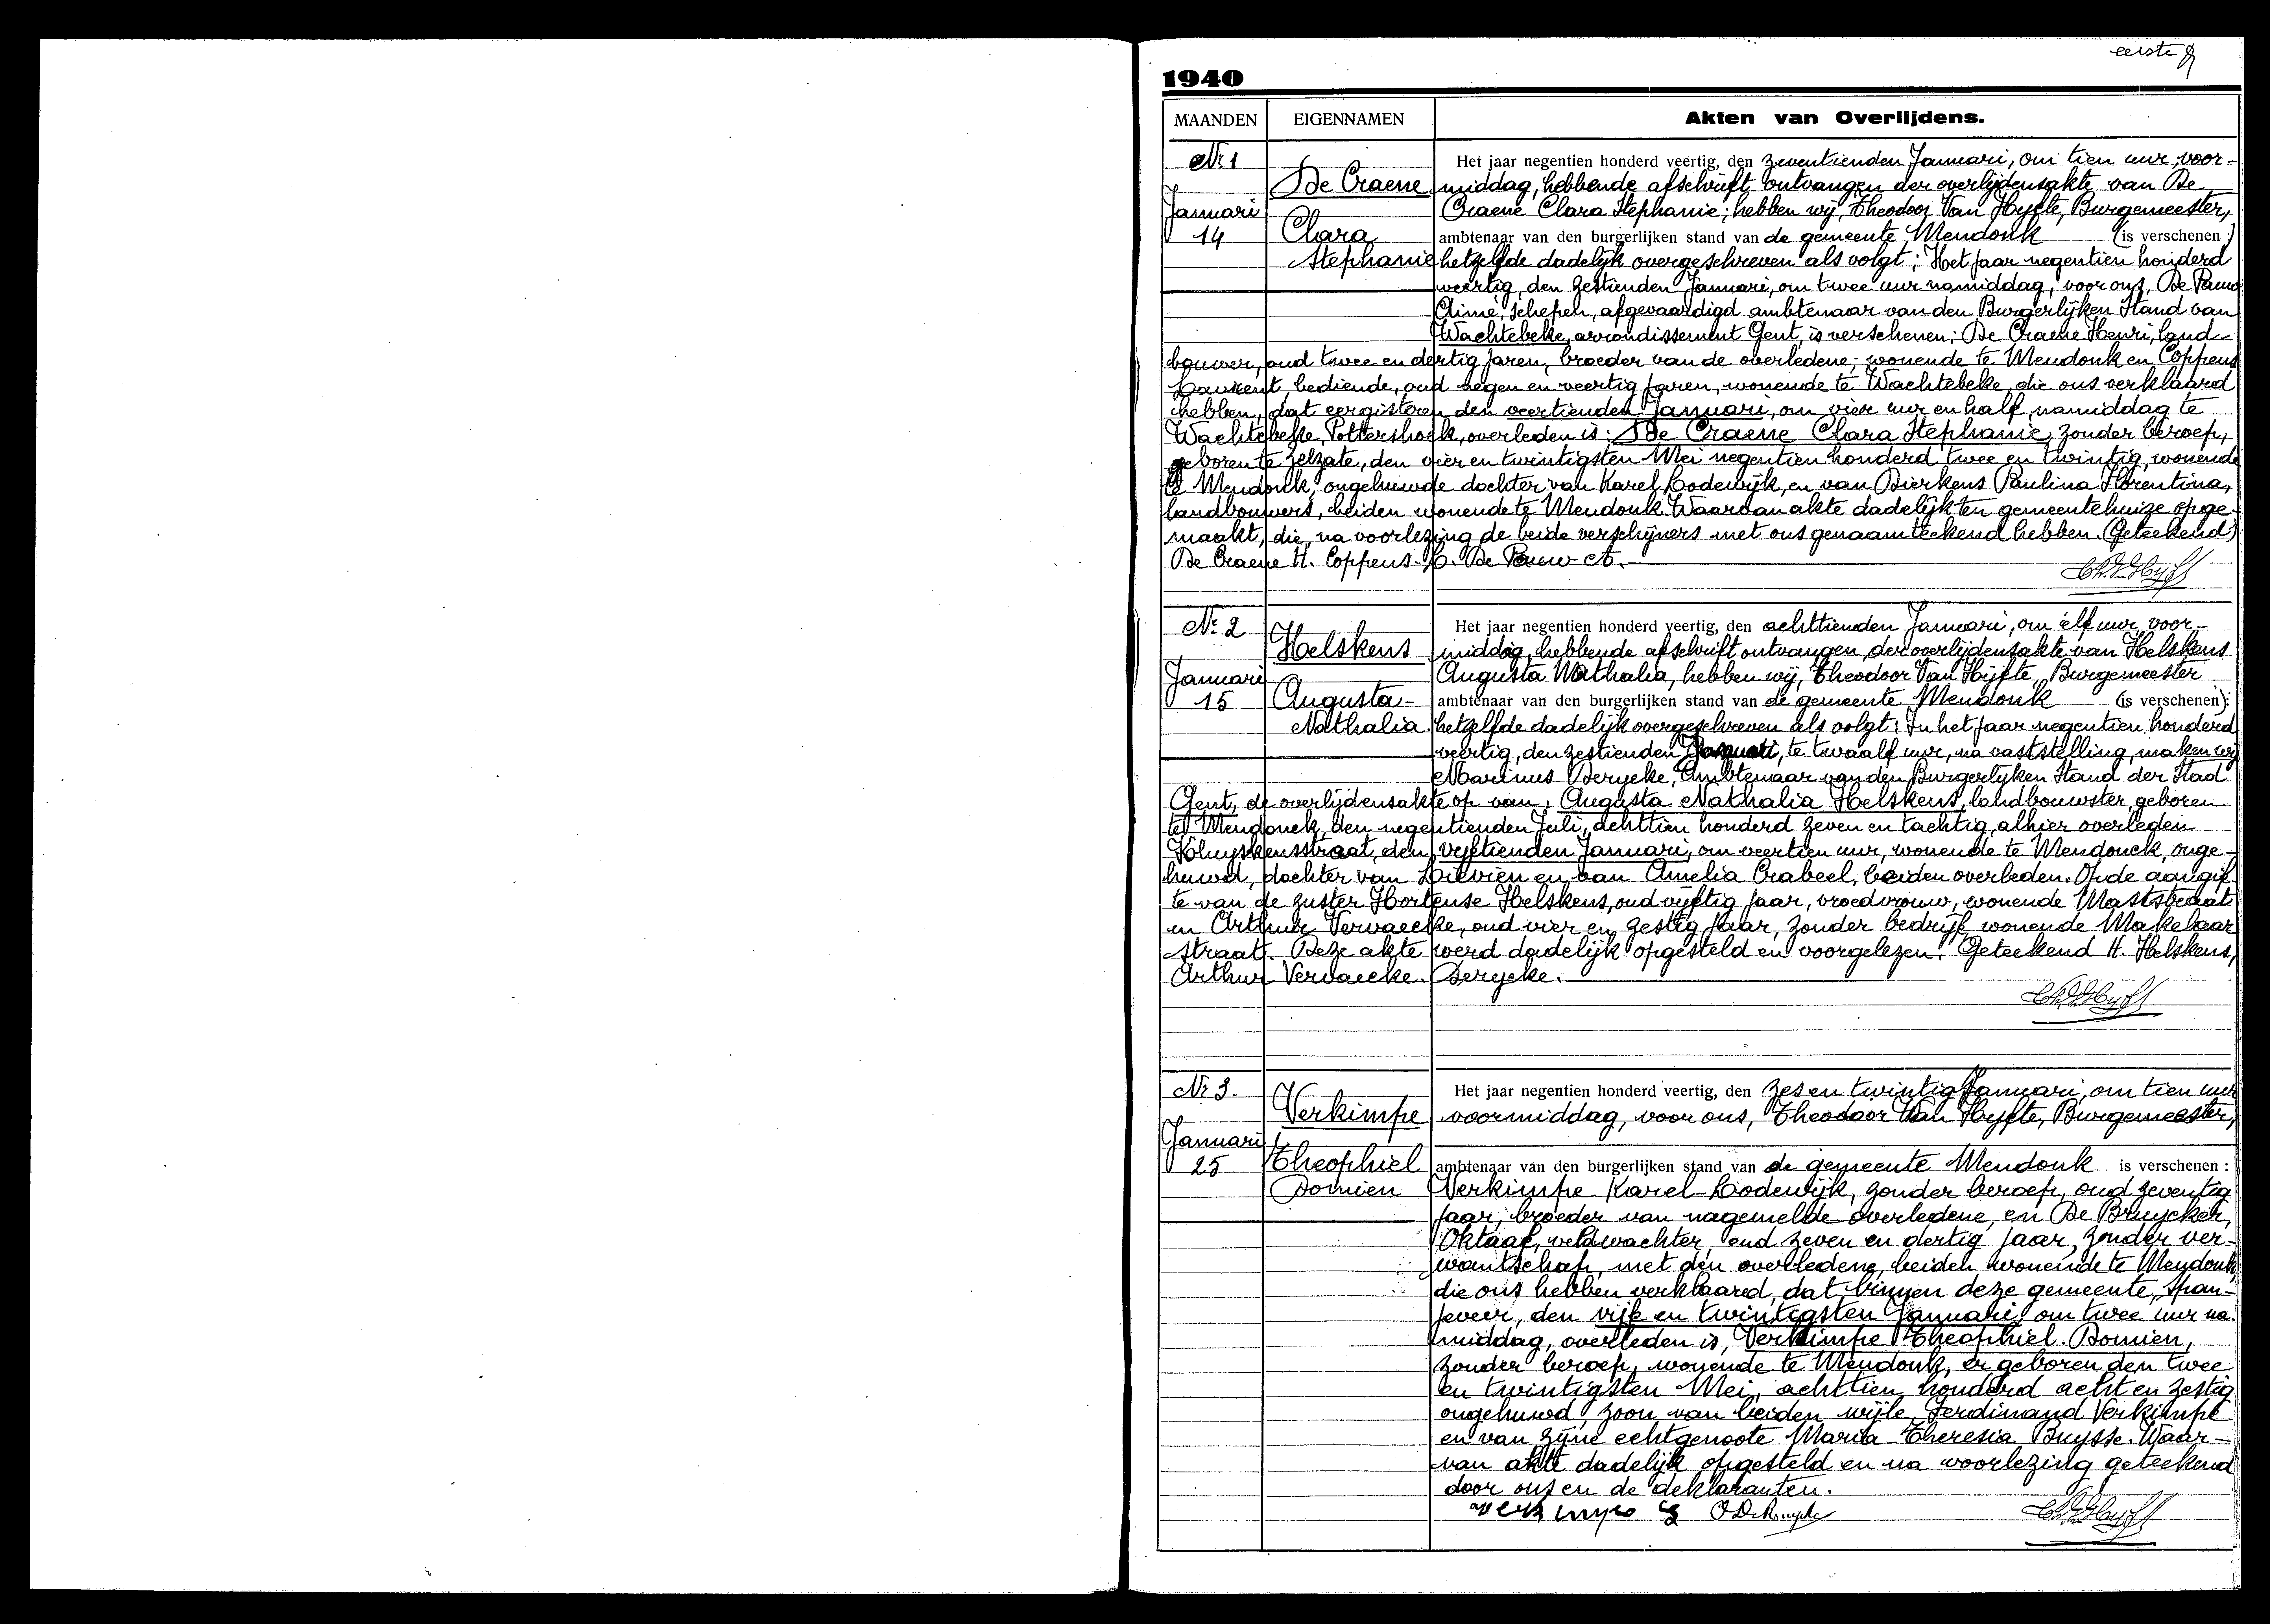 eerste
1940
MAANDEN EIGENNAMEN Akten van Overlijdens.
Nr 1
Januari
14
De Craene
Clara
Stephanie
Het jaar negentien honderd veertig, den zeventienden Januari, om tien uur voor-
middag, hebbende afschrift ontvangen der overlijdensakte van De
Craene Clara Stephanie; hebben wij, Theodoor Van Hyfte, Burgemeester,
ambtenaar van den burgerlijken stand van de gemeente Mendonk (is verschenen:)
hetzelfde dadelijk overgeschreven als volgt: Het jaar negentien honderd
veertig, den zestienden Januari, om twee uur namiddag, voor ons, De Pauw
Aimé, schepen, afgevaardigd ambtenaar van den Burgerlijken Stand van
Wachtebeke, arrondissement Gent, is verschenen: De Craene Henri, land-
bouwer, oud twee en dertig jaren, broeder van de overledene; wonende te Mendonk en Coppens
Laurent, bediende, oud negen en veertig jaren, wonende te Wachtebeke, die ons verklaard
hebben, dat eergisteren den veertienden Januari, om vier uur en half namiddag te
Wachtebeke, Pottershoek, overleden is: De Craene Clara Stephanie, zonder beroep,
geboren te Zelzate, den vier en twintigsten Mei negentien honderd twee en twintig, wonende
te Mendonk, ongehuwde dochter van Karel Lodewijk, en van Dierkens Paulina Florentina,
landbouwers, beiden wonende te Mendonk. Waarvan akte dadelijk ten gemeentehuize opge-
maakt, die, na voorlezing de beide verschijners met ons genaamteekend hebben. (Geteekend)
De Craene H. Coppens. L. De Pauw A.
Nr 2
Januari
15
Helskens
Augusta-
Nathalia
Het jaar negentien honderd veertig, den achttienden Januari, om elf uur, voor-
middag, hebbende afschrift ontvangen der overlijdensakte van Helskens
Augusta Nathalia, hebben wij, Theodoor Van Hijfte, Burgemeester
ambtenaar van den burgerlijken stand van de gemeente Mendonk (is verschenen):
hetzelfde dadelijk overgeschreven als volgt: In het jaar negentien honderd
veertig, den zestienden Januari, te twaalf uur, na vaststelling, maken wij
Marinus Derycke, Ambtenaar van den Burgerlyken Stand der Stad
Gent, de overlijdensakte op van: Augusta Nathalia Helskens, landbouwster, geboren
te Mendonck, den negentienden Juli, achttien honderd zeven en tachtig, alhier overleden
Kluyskensstraat, den vijftienden Januari, om veertien uur, wonende te Mendonck, onge-
huwd, dochter van Lievien en van Amelia Crabeel, beiden overleden. Op de aangif-
te van de zuster Hortense Helskens, oud vijftig jaar, vroedvrouw, wonende Maststraat
en Arthur Vervaecke, oud vier en zestig jaar, zonder bedrijf, wonende Makelaar
straat. Deze akte werd dadelijk opgesteld en voorgelezen. Geteekend H. Helskens,
Arthur Vervaecke. Derycke.
Nr 3.
Januari
25
Verkimpe
Theophiel
Domien
Het jaar negentien honderd veertig, den zes en twintig Januari, om tien uur
voormiddag, voor ons, Theodoor Van Hyfte, Burgemeester,
ambtenaar van den burgerlijken stand van de gemeente Mendonk is verschenen:
Verkimpe Karel-Lodewijk, zonder beroep, oud zeventig
jaar, broeder van nagemelde overledene, en De Bruycker,
Oktaaf, veldwachter, oud zeven en dertig jaar, zonder ver-
wantschap, met den overledene, beiden wonende te Mendonk,
die ons hebben verklaard, dat binnen deze gemeente, Span-
jeveer, den vijf en twintigsten Januari, om twee uur na-
middag, overleden is, Verkimpe Theophiel-Domien,
zonder beroep, wonende te Mendonk, er geboren den twee
en twintigsten Mei, achttien honderd acht en zestig
ongehuwd, zoon van beiden wijle, Ferdinand Verkimpe
en van zijne echtgenoote Maria-Theresia Buysse. Waar-
van akte dadelijk opgesteld en na voorlezing geteekend
door ons en de deklaranten.